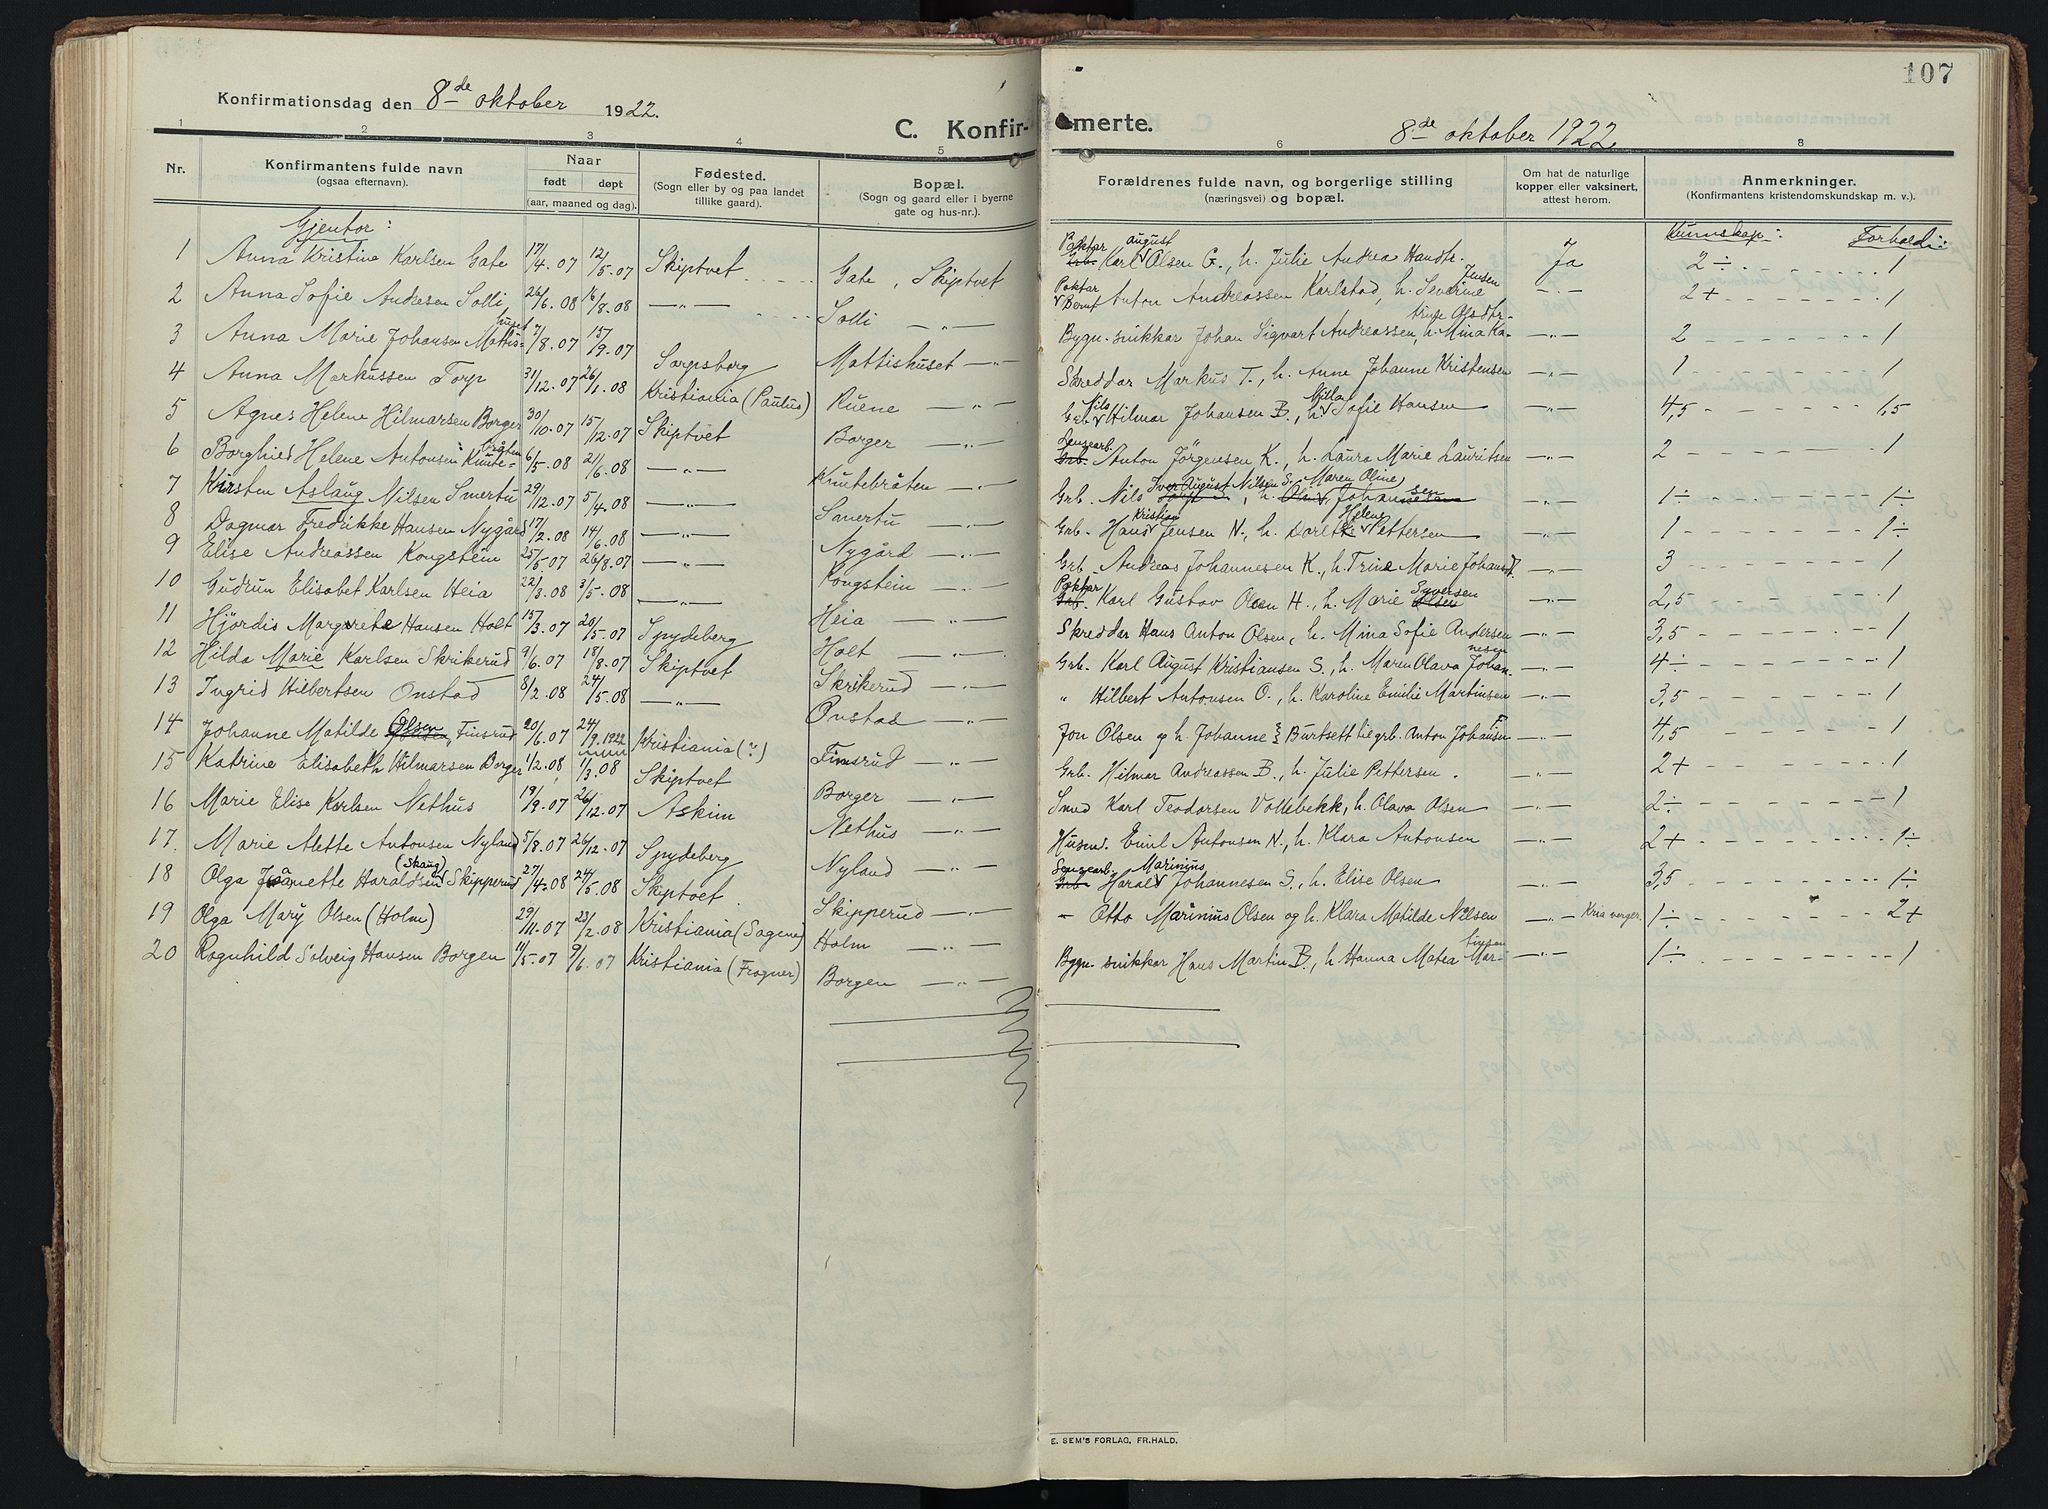 107
Konfirmationsdag den 8de oktober 1922.
C. Konfir-
merte.
8de oktober 1922
1 2 3 4 5 6 8
Nr. Konfirmantens fulde navn (ogsaa efternavn). Naar født døpt (aar, maaned og dag). Fødested. (Sogn eller by og paa landet tillike gaard). Bopæl. (Sogn og gaard eller i byerne gate og hus-nr.). Forældrenes fulde navn, og borgerlige stilling (næringsvei) og bopæl. Om hat de naturlige kopper eller vaksinert, attest herom. Anmerkninger. (Konfirmantens kristendomskundskap m. v.).
Gjentor: Kunnskap: Forhold:
1 Anna Kristine Karlsen Gate 17/4.07 12/5.07 Skiptvet Gate, Skiptvet Grb. Karl august Olsen G., h. Julie Andrea Hansdtr. Ja 2÷ 1
2 Anna Sofie Andresen Solli 26/6.08 16/8.08 —"— Solli —"— Anton Andreassen Karlstad, h. Severine Jensen —"— 2+ 1
3 Anna Marie Johansen Mattis-huset 7/8.07 15/9.07 Mattishuset —"— Bygn. snikkar Johan Sigvart Andreassen, h. Mina Ka-trine Olsdtr. —"— 2 1
4 Anna Markussen Torp 31/12.07 26/1.08 Sarpsborg Ruene —"— Skreddar Markus T., h. Anne Johanne Kristensen —"— 1 1
5 Agnes Helene Hilmarsen Borger 30/10.07 15/12.07 Kristiania (Paulus) Borger —"— Grb. Nils Hilmar Johansen B., h. Milla Sofie Hansen —"— 4,5 1,5
6 Borghild Helene Antonsen Knute-bråten 6/5.08 21/6.08 Skiptvet Knutebråten —"— Grb. Anton Jörgensen K., h. Laura Marie Lauritsen —"— 2 1
7 Kirsten Aslaug Nilsen Smertu 29/12.07 5/4.08 —"— Smertu —"— Grb. Nils Iver August Nilsen S., h. Maren Oline Johannesen —"— 1÷ 1÷
8 Dagmar Fredrikke Hansen Nygård 17/2.08 14/6.08 —"— Nygård —"— Grb. Hans Kristian Jensen N., h. Dorte Helene Pettersen —"— 1 1÷
9 Elise Andreassen Kongstein 25/5.07 26/8.07 —"— Kongstein —"— Grb. Andreas Johannesen K., h. Trine Marie Johansdt. —"— 3 1
10 Gudrun Elisabet Karlsen Heia 22/3.08 3/5.08 —"— Heia —"— Grb. Karl Gustav Olsen H., h. Marie Olsen Syversen —"— 2,5 1
11 Hjördis Margrete Hansen Holt 15/3.07 20/5.07 Spydeberg Holt —"— Skreddar Hans Anton Olsen, h. Mina Sofie Andersen —"— 3,5 1
12 Hilda Marie Karlsen Skrikerud 9/6.07 18/8.07 Skiptvet Skrikerud —"— Grb. Karl August Kristiansen S., h. Maren Olava Johan-nesen —"— 4÷ 1
13 Ingrid Hilbertsen Onstad 8/2.08 24/5.08 —"— Onstad —"— " Hilbert Antonsen O., h. Karoline Emilie Martinsen —"— 3,5 1
14 Johanne Matilde Olsen, Finsrud 20/6.07 24/9.1922 Kristiania (?) Finsrud —"— Jon Olsen og h. Johanne } Burtsett li grb. Anton Johansen F —"— 4,5 1
15 Katrine Elisabeth Hilmarsen Borger 1/2.08 1/3.08 Skiptvet Borger —"— Grb. Hilmar Andreassen B., h. Julie Pettersen. —"— 2+ 1
16 Marie Elise Karlsen Nethus 19/9.07 26/12.07 Askim Nethus —"— Smed Karl Teodorsen Vollebekk, h. Olava Olsen —"— 2÷ 1
17. Marie Alette Antonsen Nyland 5/8.07 26/12.07 Spydeberg Nyland —"— Husmd. Emil Antonsen N., h. Klara Antonsen —"— 2+ 1÷
18 Olga Jeanette Haraldsen (Skaug) Skipperud 27/4.08 24/5.08 Skiptvet. Skipperud —"— Grb. Harald Marinius Johannesen S., h. Elise Olsen —"— 3,5 1÷
19 Olga Mary Olsen (Holm) 29/11.07 23/2.08 Kristiania (Sagene) Holm —"— – Otto Marinius Olsen og h. Klara Matilde Nilsen —"— Kria verger. 1÷ 2+
20 Ragnhild Solveig Hansen Borgen 11/5.07 9/6.07 Kristiania (Frogner) Borgen —"— Bygn. snikkar Hans Martin B., h. Hanna Matea Mar-tinsen —"— 1÷ 1
E. SEM'S FORLAG, FR.HALD.